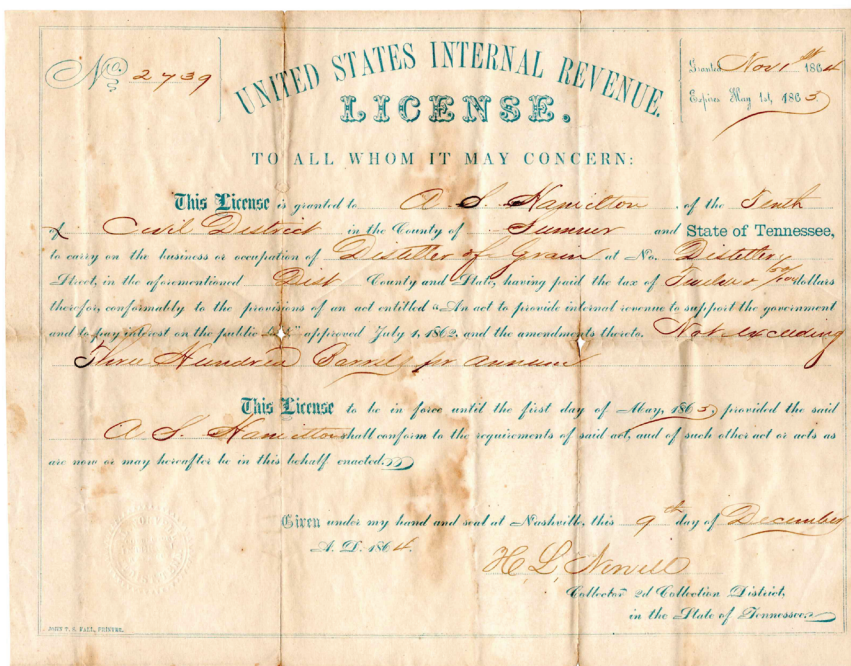 No. 2739
UNITED STATES INTERNAL REVENUE
LICENSE.
Granted Nov 1st 1864
Expires May 1st, 1865.
TO ALL WHOM IT MAY CONCERN:
This License is granted to A. S. Hamilton of the Tenth
Civil District in the County of Sumner and State of Tennessee,
to carry on the business or occupation of Distiller of Grain at No. Distillery
Street, in the aforementioned Dist County and State, having paid the tax of dollars
therefor, conformably to the provisions of an act entitled "An act to provide internal revenue to support the government
and to pay interest on the public " approved July 1, 1862, and the amendments thereto. Not exceeding
Three Hundred Barrels per annum
This License to be in force until the first day of May, 1865, provided the said
A. S. Hamilton shall conform to the requirements of said act, and of such other act or acts as
are now or may hereafter be in this behalf enacted.
Given under my hand and seal at Nashville, this 9th day of December
A. D. 1864.
H. L. Newell
Collector 2d Collection District,
in the State of Tennessee.
JOHN T. S. FALL, PRINTER.